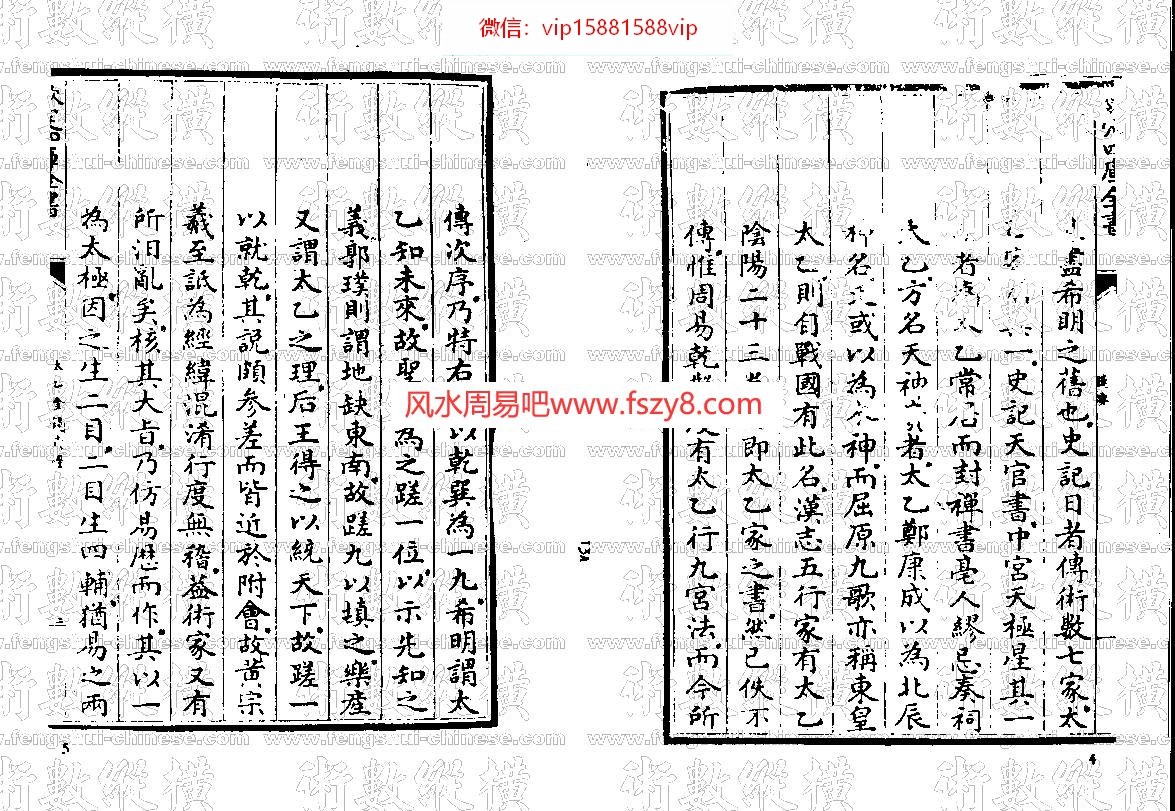 微信：vip15881588vip
四庫全書
盡希明之舊也史記日者傳術數七家太
一史記天官書中宮天極星其一
者乙常居而封禪書亳人繆忌奏祠
乙方名天神者太乙鄭康成以為北辰
神名或以為神而屈原九歌亦稱東皇
太乙則自戰國有此名漢志五行家有太乙
陰陽二十三即太乙家之書然已佚不
傳惟周易乾有太乙行九宮法而今所
4
傳次序乃特右以乾巽為一九希明謂太
乙知未來故聖為之蹉一位以示先知之
義郭璞則謂地缺東南故蹉九以填之樂產
又謂太乙之理后王得之以統天下故蹉一
以就乾其說頗參差而皆近於附會故黃宗
羲至詆為經緯混淆行度無稽蓋術家又有
所汩亂矣核其大旨乃仿易歷而作其以一
為太極因之生二目二目生四輔猶易之兩
5
风水周易吧www.fszy8.com
術數縱橫
www.fengshui-chinese.com